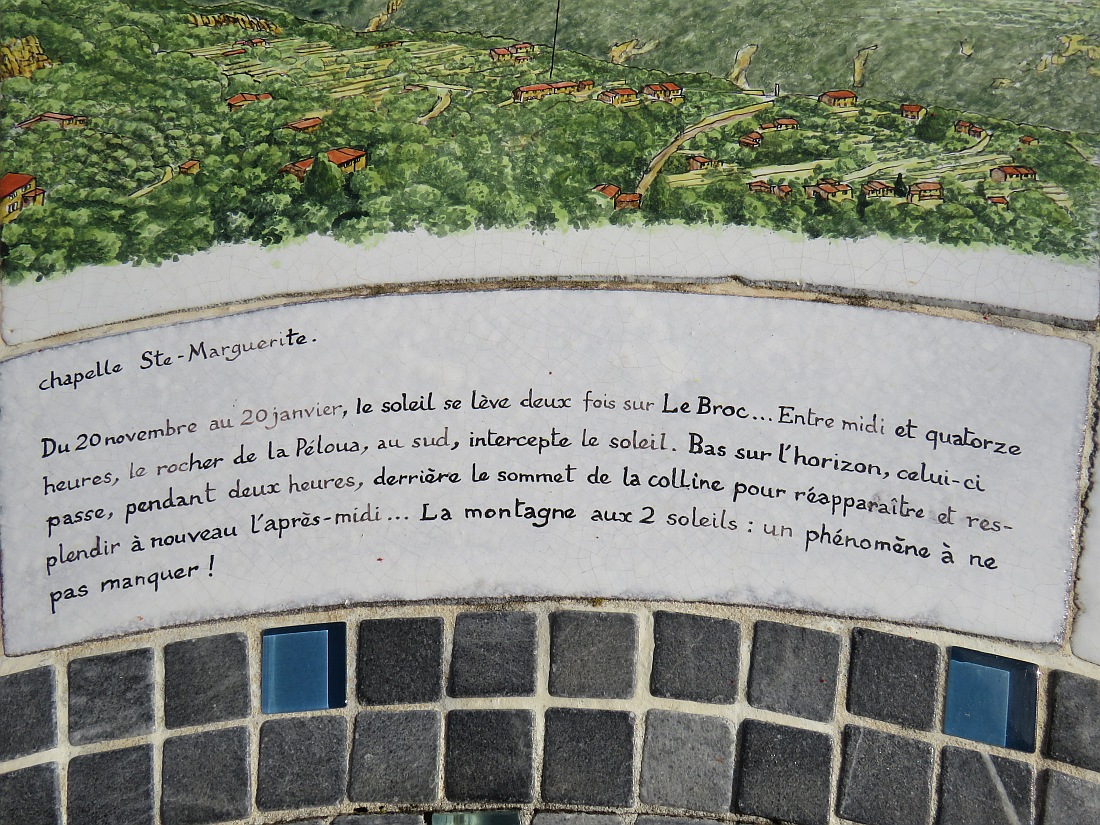 chapelle Ste-Marguerite.
Du 20 novembre au 20 janvier, le soleil se lève deux fois sur Le Broc... Entre midi et quatorze
heures, le rocher de la Péloua, au sud, intercepte le soleil. Bas sur l'horizon, celui-ci
passe, pendant deux heures, derrière le sommet de la colline pour réapparaître et res-
plendir à nouveau l'après-midi... La montagne aux 2 soleils : un phénomène à ne
pas manquer !